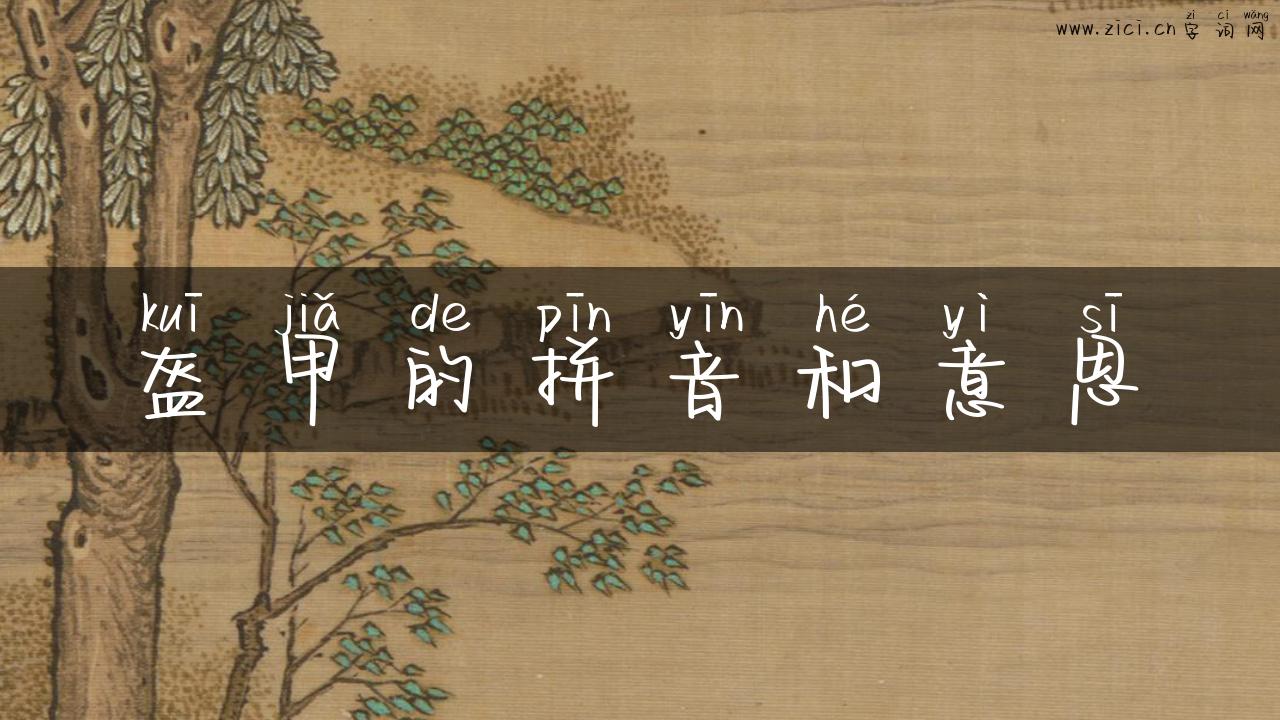 zì cí wǎng
www.zici.cn 字词网
kuī jiǎ de pīn yīn hé yì sī
盔甲的拼音和意思